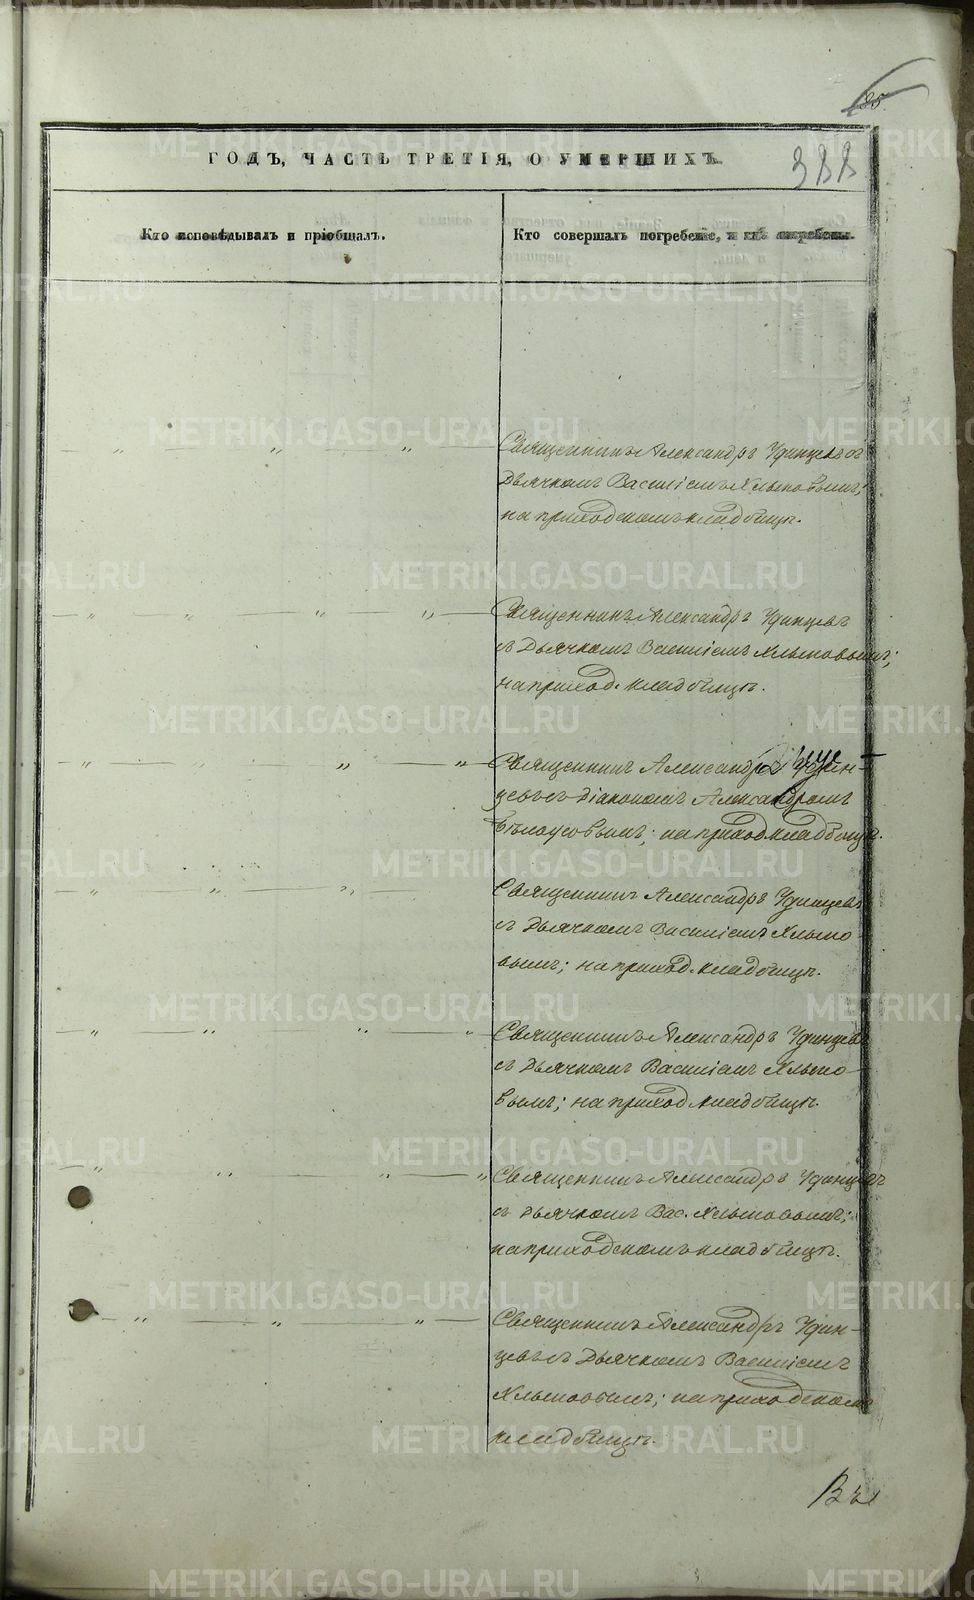 85.
ГОДЪ, ЧАСТЬ ТРЕТІЯ, О УМЕРШИХЪ.
388
Кто исповѣдывалъ и пріобщалъ.
Кто совершалъ погребеніе, и гдѣ погребены.
Священникъ Александръ Удинцевъ съ
Дьячкомъ Василіемъ Хлыновымъ;
на приходскомъ кладбищѣ.
Священникъ Александръ Удинцевъ
съ Дьячкомъ Василіемъ Хлыновымъ;
на приход. кладбищѣ.
Священникъ Александръ Удин-
цевъ съ Діакономъ Александромъ
Бѣлоусовымъ; на приход. кладбищѣ.
Священникъ Александръ Удинцевъ
съ Дьячкомъ Василіемъ Хлыно-
вымъ; на приход. кладбищѣ.
Священникъ Александръ Удинцевъ
съ Дьячкомъ Василіемъ Хлыно-
вымъ; на приход. кладбищѣ.
Священникъ Александръ Удинцевъ
съ Дьячкомъ Вас. Хлыновымъ;
на приходскомъ кладбищѣ.
Священникъ Александръ Удин-
цевъ съ Дьячкомъ Василіемъ
Хлыновымъ; на приходскомъ
кладбищѣ.
METRIKI.GASO-URAL.RU